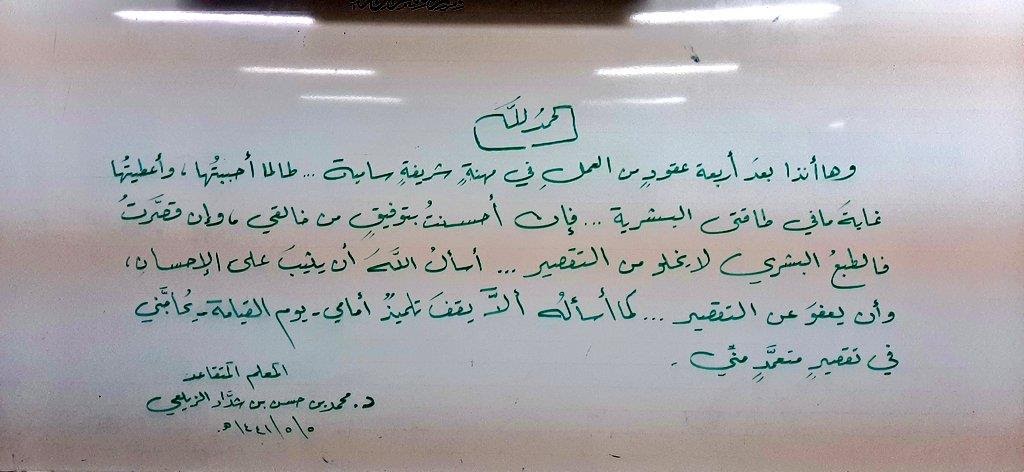 الحمدُ للَّه
وها أنذا بعدَ أربعة عقودٍ من العملِ في مهنةٍ شريفةٍ سامية ... طالما أحببتُها ، وأعطيتُها
غايةَ مافي طاقتي البشرية ... فإن أحسنتُ بتوفيقٍ من خالقي ، وإن قصَّرتُ
فالطبعُ البشري لا يخلو من التقصير ... أسألُ اللَّهَ أن يثيبَ على الإحسانِ ،
وأن يعفوَ عن التقصير ... كما أسألُه ألاَّ يقفَ تلميذٌ أمامي - يوم القيامة - يُحاجُّني
في تقصيرٍ متعمَّدٍ منِّي .
المعلم المتقاعد
د . محمد بن حسن بن شدَّاد الزيلعي
٥ / ٥ / ١٤٤١هـ